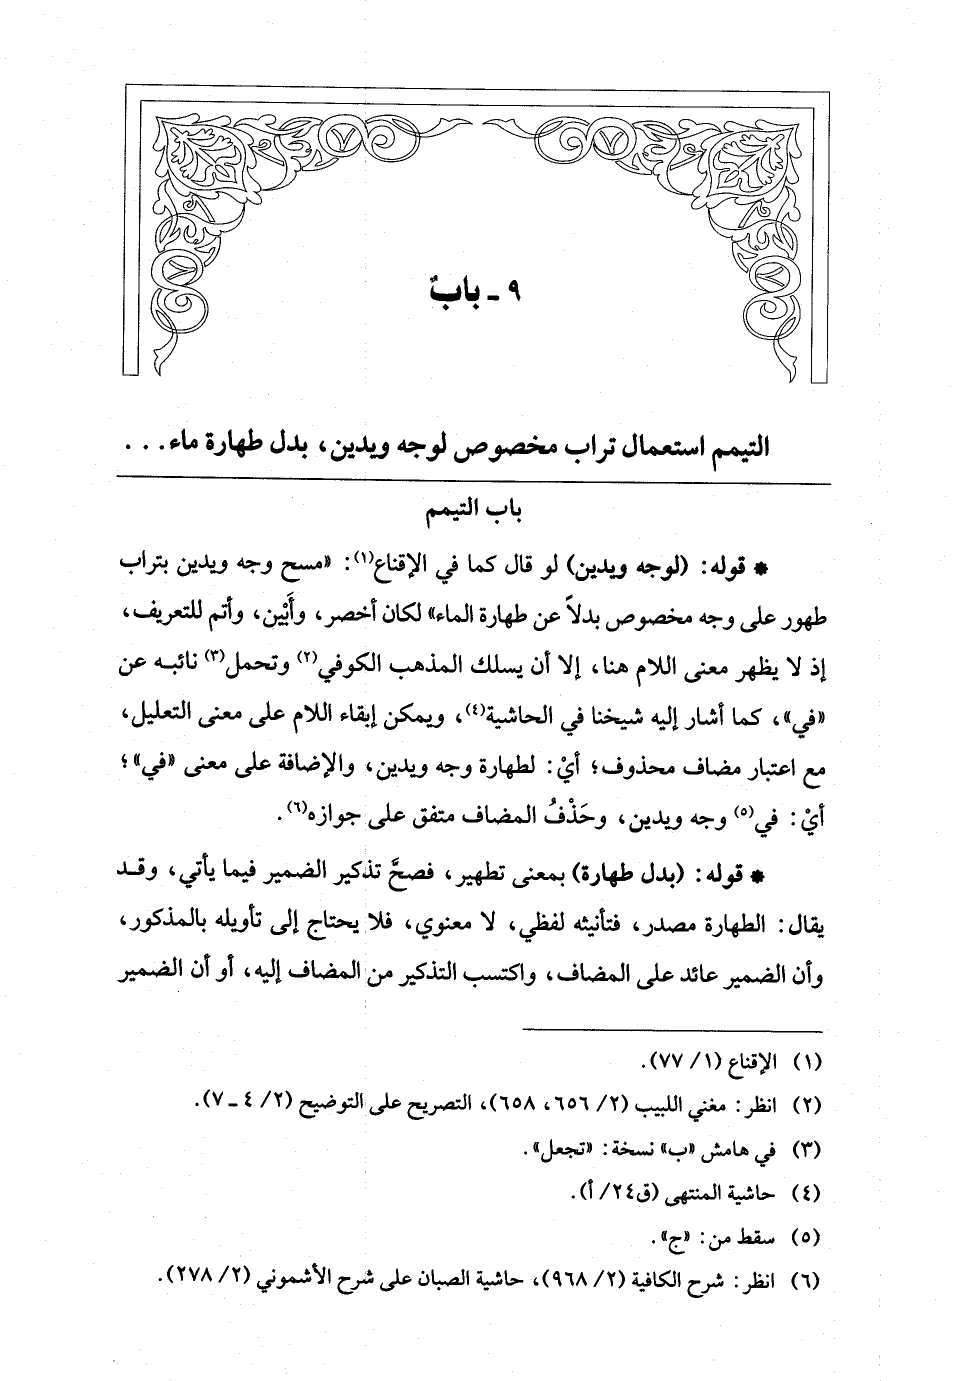 ٩ ـ بابٌ
التيمم استعمال تراب مخصوص لوجه ويدين، بدل طهارة ماء . . .
باب التيمم
* قوله: (لوجه ويدين) لو قال كما في الإقناع(١): «مسح وجه ويدين بتراب
طهور على وجه مخصوص بدلاً عن طهارة الماء» لكان أخصر، وأَبْين، وأتم للتعريف،
إذ لا يظهر معنى اللام هنا، إلا أن يسلك المذهب الكوفي(٢) وتحمل(٣) نائبه عن
«في»، كما أشار إليه شيخنا في الحاشية(٤)، ويمكن إبقاء اللام على معنى التعليل،
مع اعتبار مضاف محذوف؛ أيْ: لطهارة وجه ويدين، والإضافة على معنى «في»؛
أيْ: في(٥) وجه ويدين، وحَذْفُ المضاف متفق على جوازه(٦).
* قوله: (بدل طهارة) بمعنى تطهير، فصحَّ تذكير الضمير فيما يأتي، وقد
يقال: الطهارة مصدر، فتأنيثه لفظي، لا معنوي، فلا يحتاج إلى تأويله بالمذكور،
وأن الضمير عائد على المضاف، واكتسب التذكير من المضاف إليه، أو أن الضمير
(١) الإقناع (١/ ٧٧).
(٢) انظر: مغني اللبيب (٢/ ٦٥٦، ٦٥٨)، التصريح على التوضيح (٢/ ٤ ـ ٧).
(٣) في هامش «ب» نسخة: «تجعل».
(٤) حاشية المنتهى (ق٢٤/ أ).
(٥) سقط من: «ج».
(٦) انظر: شرح الكافية (٢/ ٩٦٨)، حاشية الصبان على شرح الأشموني (٢/ ٢٧٨).